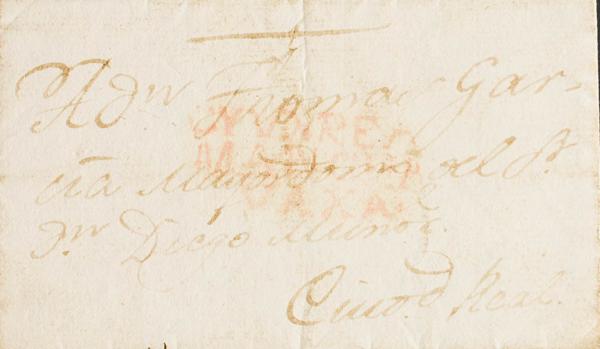 A dn Thomas Gar-
cia Mayordomo del Sr.
dn Diego Muñoz.
Ciud.d Real.